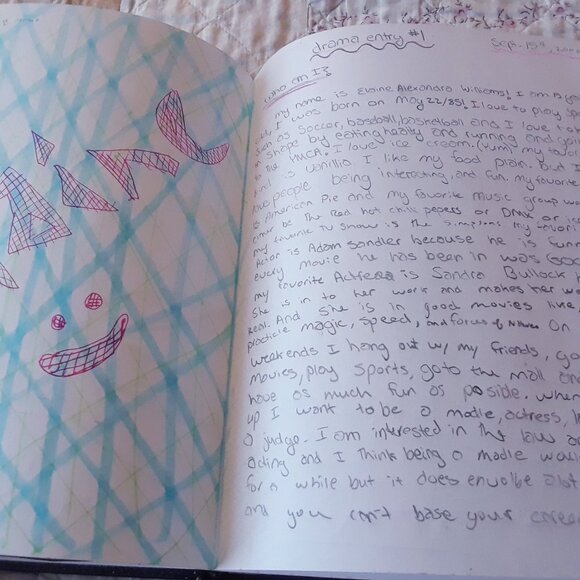 drama entry #1
Sep. 15th,
Who am I?
my name is Elaine Alexandra Williams! I am 15 years
old, I was born on May 22/85! I love to play
such as Soccer, baseball, basketball and I love to
in shape by eating healty and running and going
to the YMCA. I love ice cream. (yum) my favorite
kind is vanillia. I like my food plain. But I
like people being interesting, and fun. my favorite
is American Pie and my favorite music group
either be the Red hot chili pepers or DMX or
my favorite tv show is the simpsons my favorite
Actor is Adam sandler because he is funny
every movie he has been in was Good
my favorite Actress is Sandra Bullock
She is in to her work and makes her work
Real. And she is in good movies like
practicle magic, speed, and forces of Nature On
weekends I hang out w/ my friends, go
movies, play sports, goto the mall and
have as much fun as poside. When
up I want to be a modle, actress,
a judge. I am interested in the law and
acting and I think being a modle would
for a while but it does envolbe alot
and you can't base your career